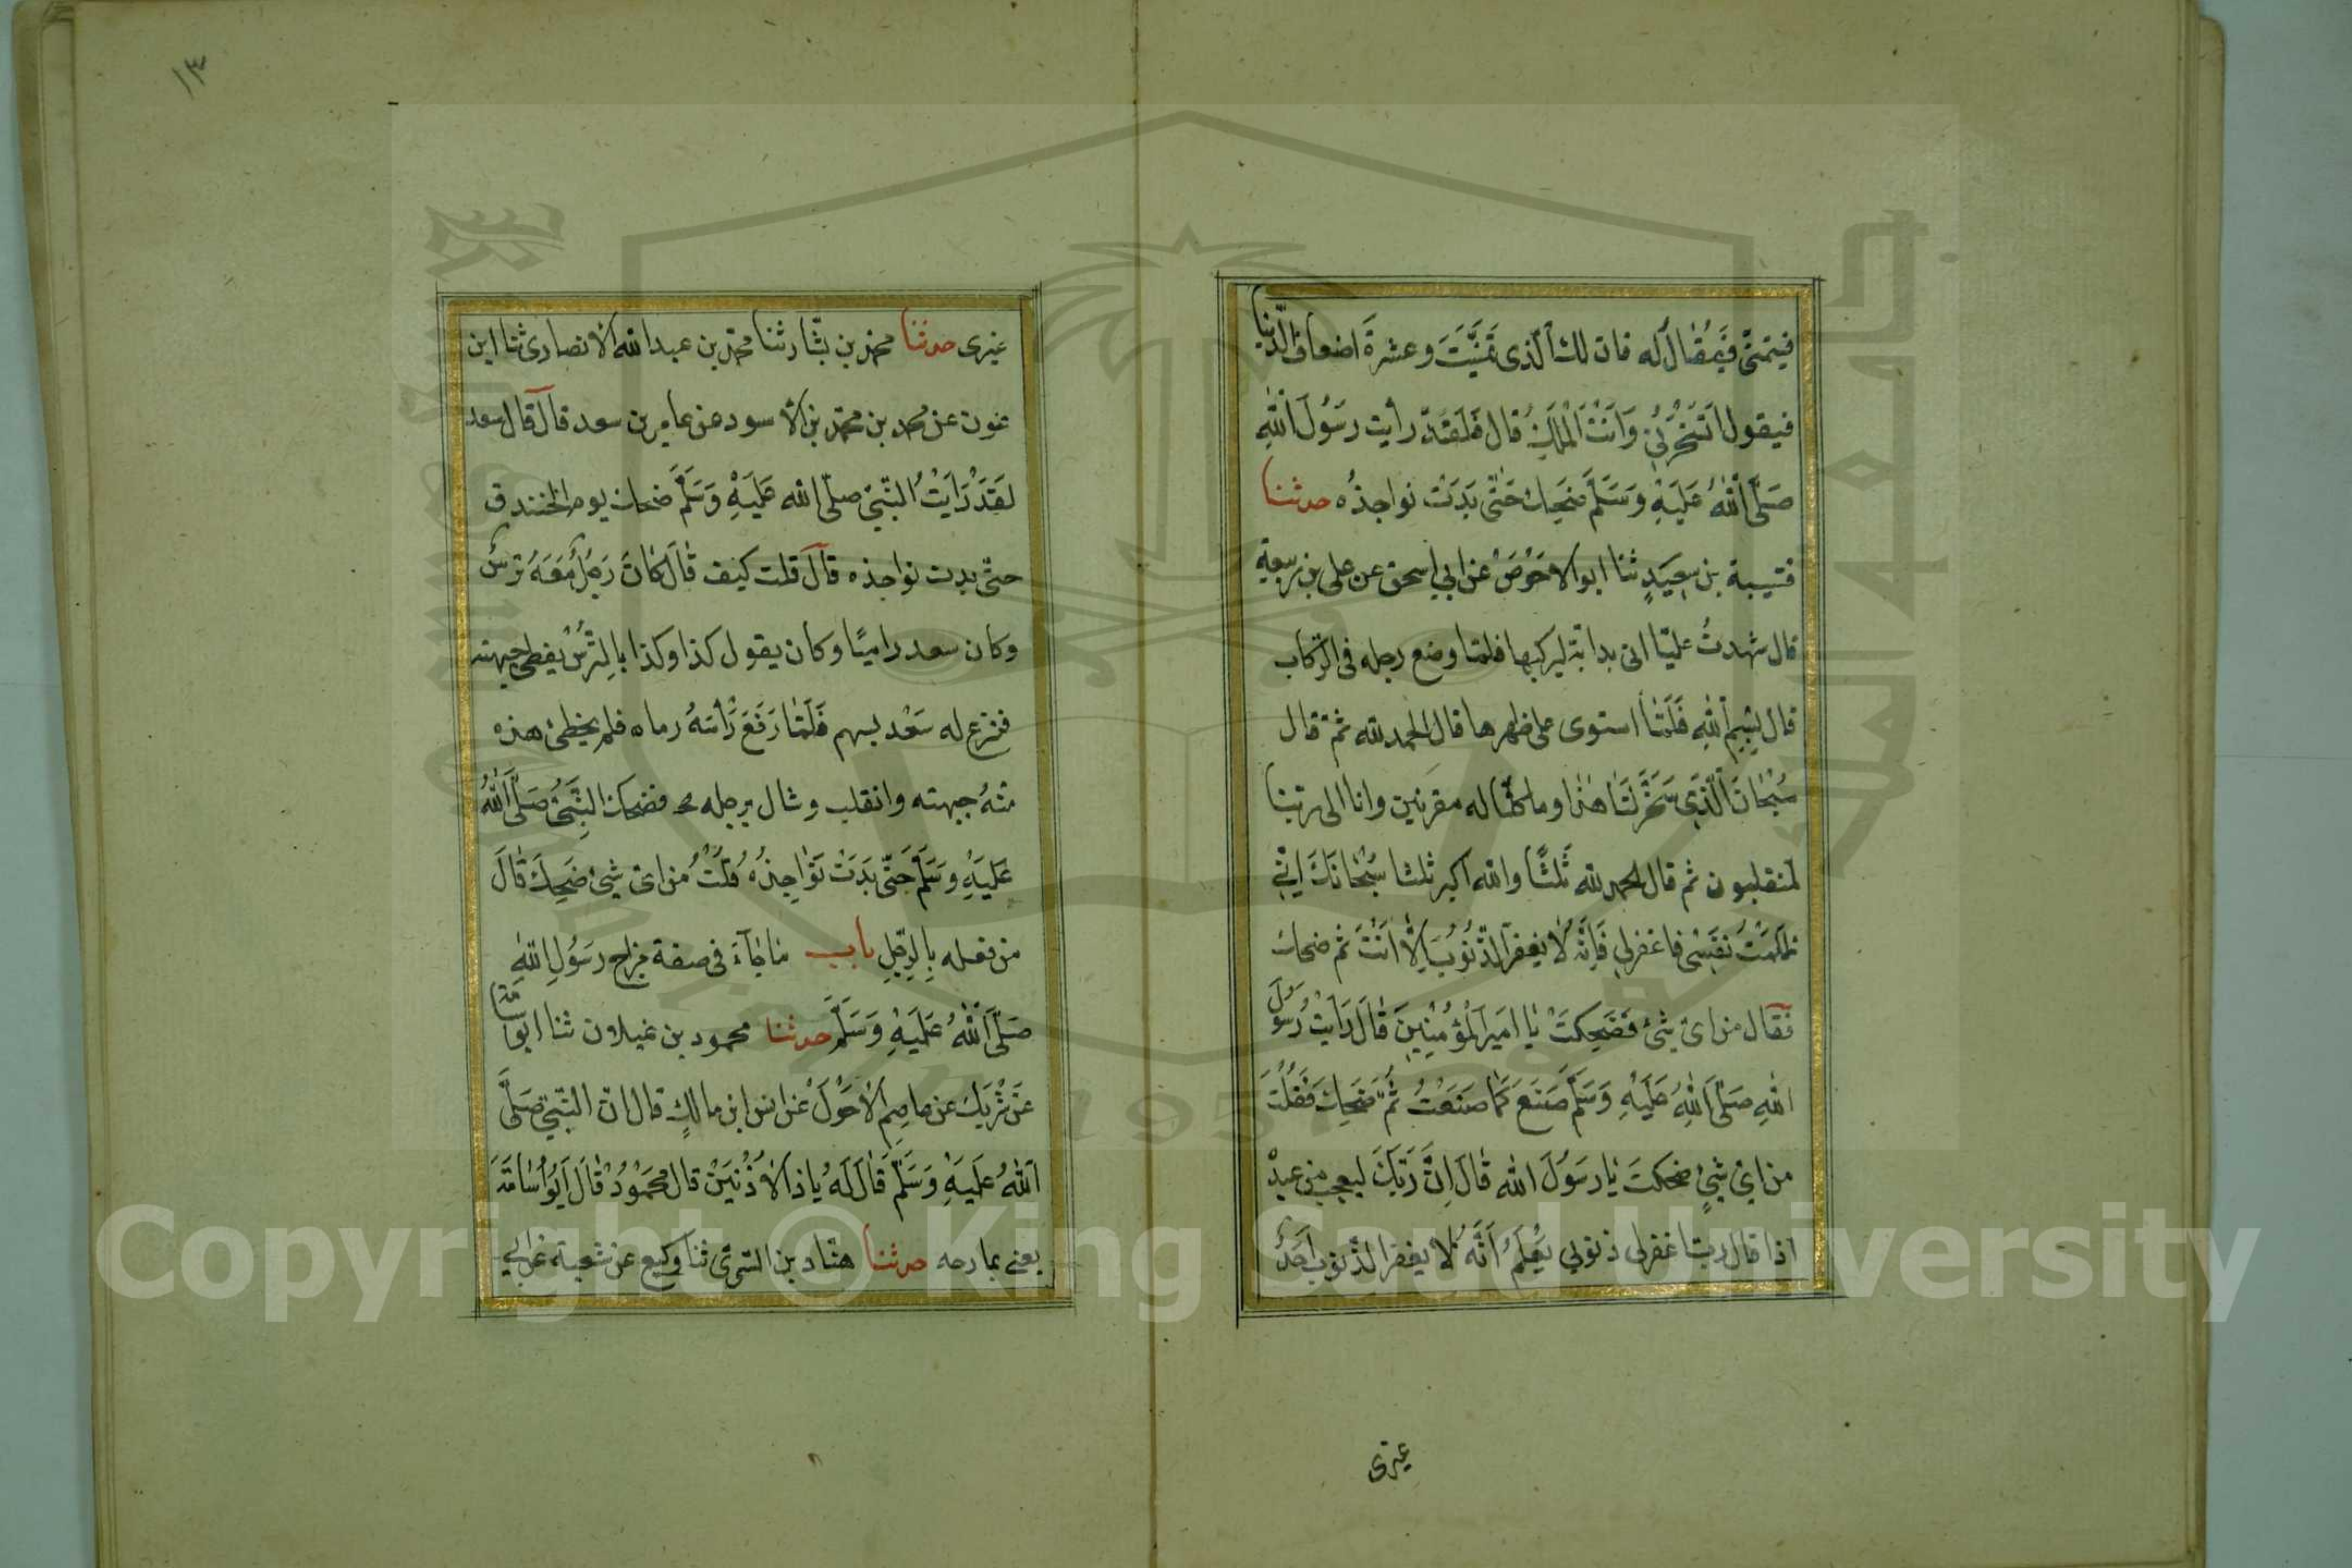 فيتمنّى فَيُقَالُ له فان لك الّذى تمنَّيْتَ وعشرة اضعاف الدّنيا
فيقول اَتَسْخَرُ بِىْ وَاَنْتَ الْمَلِكُ قال فَلَقَدْ رأيت رسُولَ اللهِ
صَلَّى اللهُ عَلَيْهِ وَسَلَّمَ ضَحِكَ حَتّى بَدَتْ نواجذُه حدثنا
قتيبة بن سعيدٍ ثنا ابو الاحْوَصْ عن ابي اسحق عن على بن ربيعة
قال شهدتُ عليّا اتى بدابّة ليركبها فلمّا وضع رجله فى الرّكاب
قال بِسْمِ اللهِ فَلَمّا استوى على ظهرها قال الحمد لله ثمّ قال
سُبْحَانَ الَّذِى سَخَّرَ لَنَا هذا وما كنّا له مقرنين وانا الى ربّنا
لمنقلبون ثم قال الحمد لله ثَلثًا والله اكبر ثلثا سُبْحَانَكَ اِنّي
ظَلَمْتُ نَفْسِى فاغفرلي فَاِنَّهُ لَا يغفر الذّنُوبَ اِلَّا اَنْتَ ثم ضحك
فقال من اىّ شئ ضَحِكتَ يا امير المُؤْمِنِينَ قَالَ رَايْتُ رَسُولَ
اللهِ صَلَّى اللهُ عَلَيْهِ وَسَلَّمَ صَنَعَ كَمَا صَنَعْتُ ثُمَّ ضَحِكَ فَقُلْتُ
من اىّ شئٍ ضحكتَ يَا رسَوُلَ الله قَالَ اِنَّ رَبَّكَ ليعجب من عبدهْ
اذا قال ربّ اغفرلى ذنوبي يَعْلَمُ اَنَّهُ لَا يغفر الذّنوب اَحَدٌ
غيرى
١٣
غيرى حدثنا محمد بن بشّار ثنا محمّد بن عبد الله الانصارى ثنا ابن
عون عن محمد بن محمّد بن الاسود عن عامر بن سعد قال قال سعد
لقَدْ رَايْتُ النّبيّ صلّى الله عَلَيْهِ وَسَلَّمَ ضحك يوم الخندق
حتّى بدت نواجذه قال قلت كيف قَالَ كَانَ رَجُلٌ مَعَهُ ترسٌ
وكان سعد راميًا وكان يقول كذا وكذا بالتّرسْ يغطى جبهته
فنزع له سَعْد بسهم فَلَمّا رَفَعَ رَأسَهُ رماه فلم يخطئ هذه
منْهُ جبهته وانقلب وشال برجله فضحك النَّبِىُّ صَلَّى اللهُ
عَلَيْهِ وَسَلَّمَ حَتّى بَدَتْ نَوَاجِذُهُ قُلْتُ من اىّ شئ ضَحِكَ قَالَ
من فعله بِالرّجلِ باب مَا جَاءَ فى صفة مزاح رسَوُلِ اللهِ
صَلَّى اللهُ عَلَيْهِ وَسَلَّمَ حدثنا محمود بن غيلان ثنا ابو اسامة
عَن شَرِيك عن عاصِم الاحْوَلْ عن انس ابن مالكٍ قال انّ النّبيّ صَلَّى
اللهُ عَلَيْهِ وَسَلَّمَ قَالَ لَهُ يَا ذا الاُذُنَيْنْ قال مَحْمُودُ قَالَ اَبُو اُسَامَةَ
يعنى يمازحه حدثنا هنّاد بن السّرى ثنا وكيع عن شعبة عن ابي
Copyright © King Saud University
1957